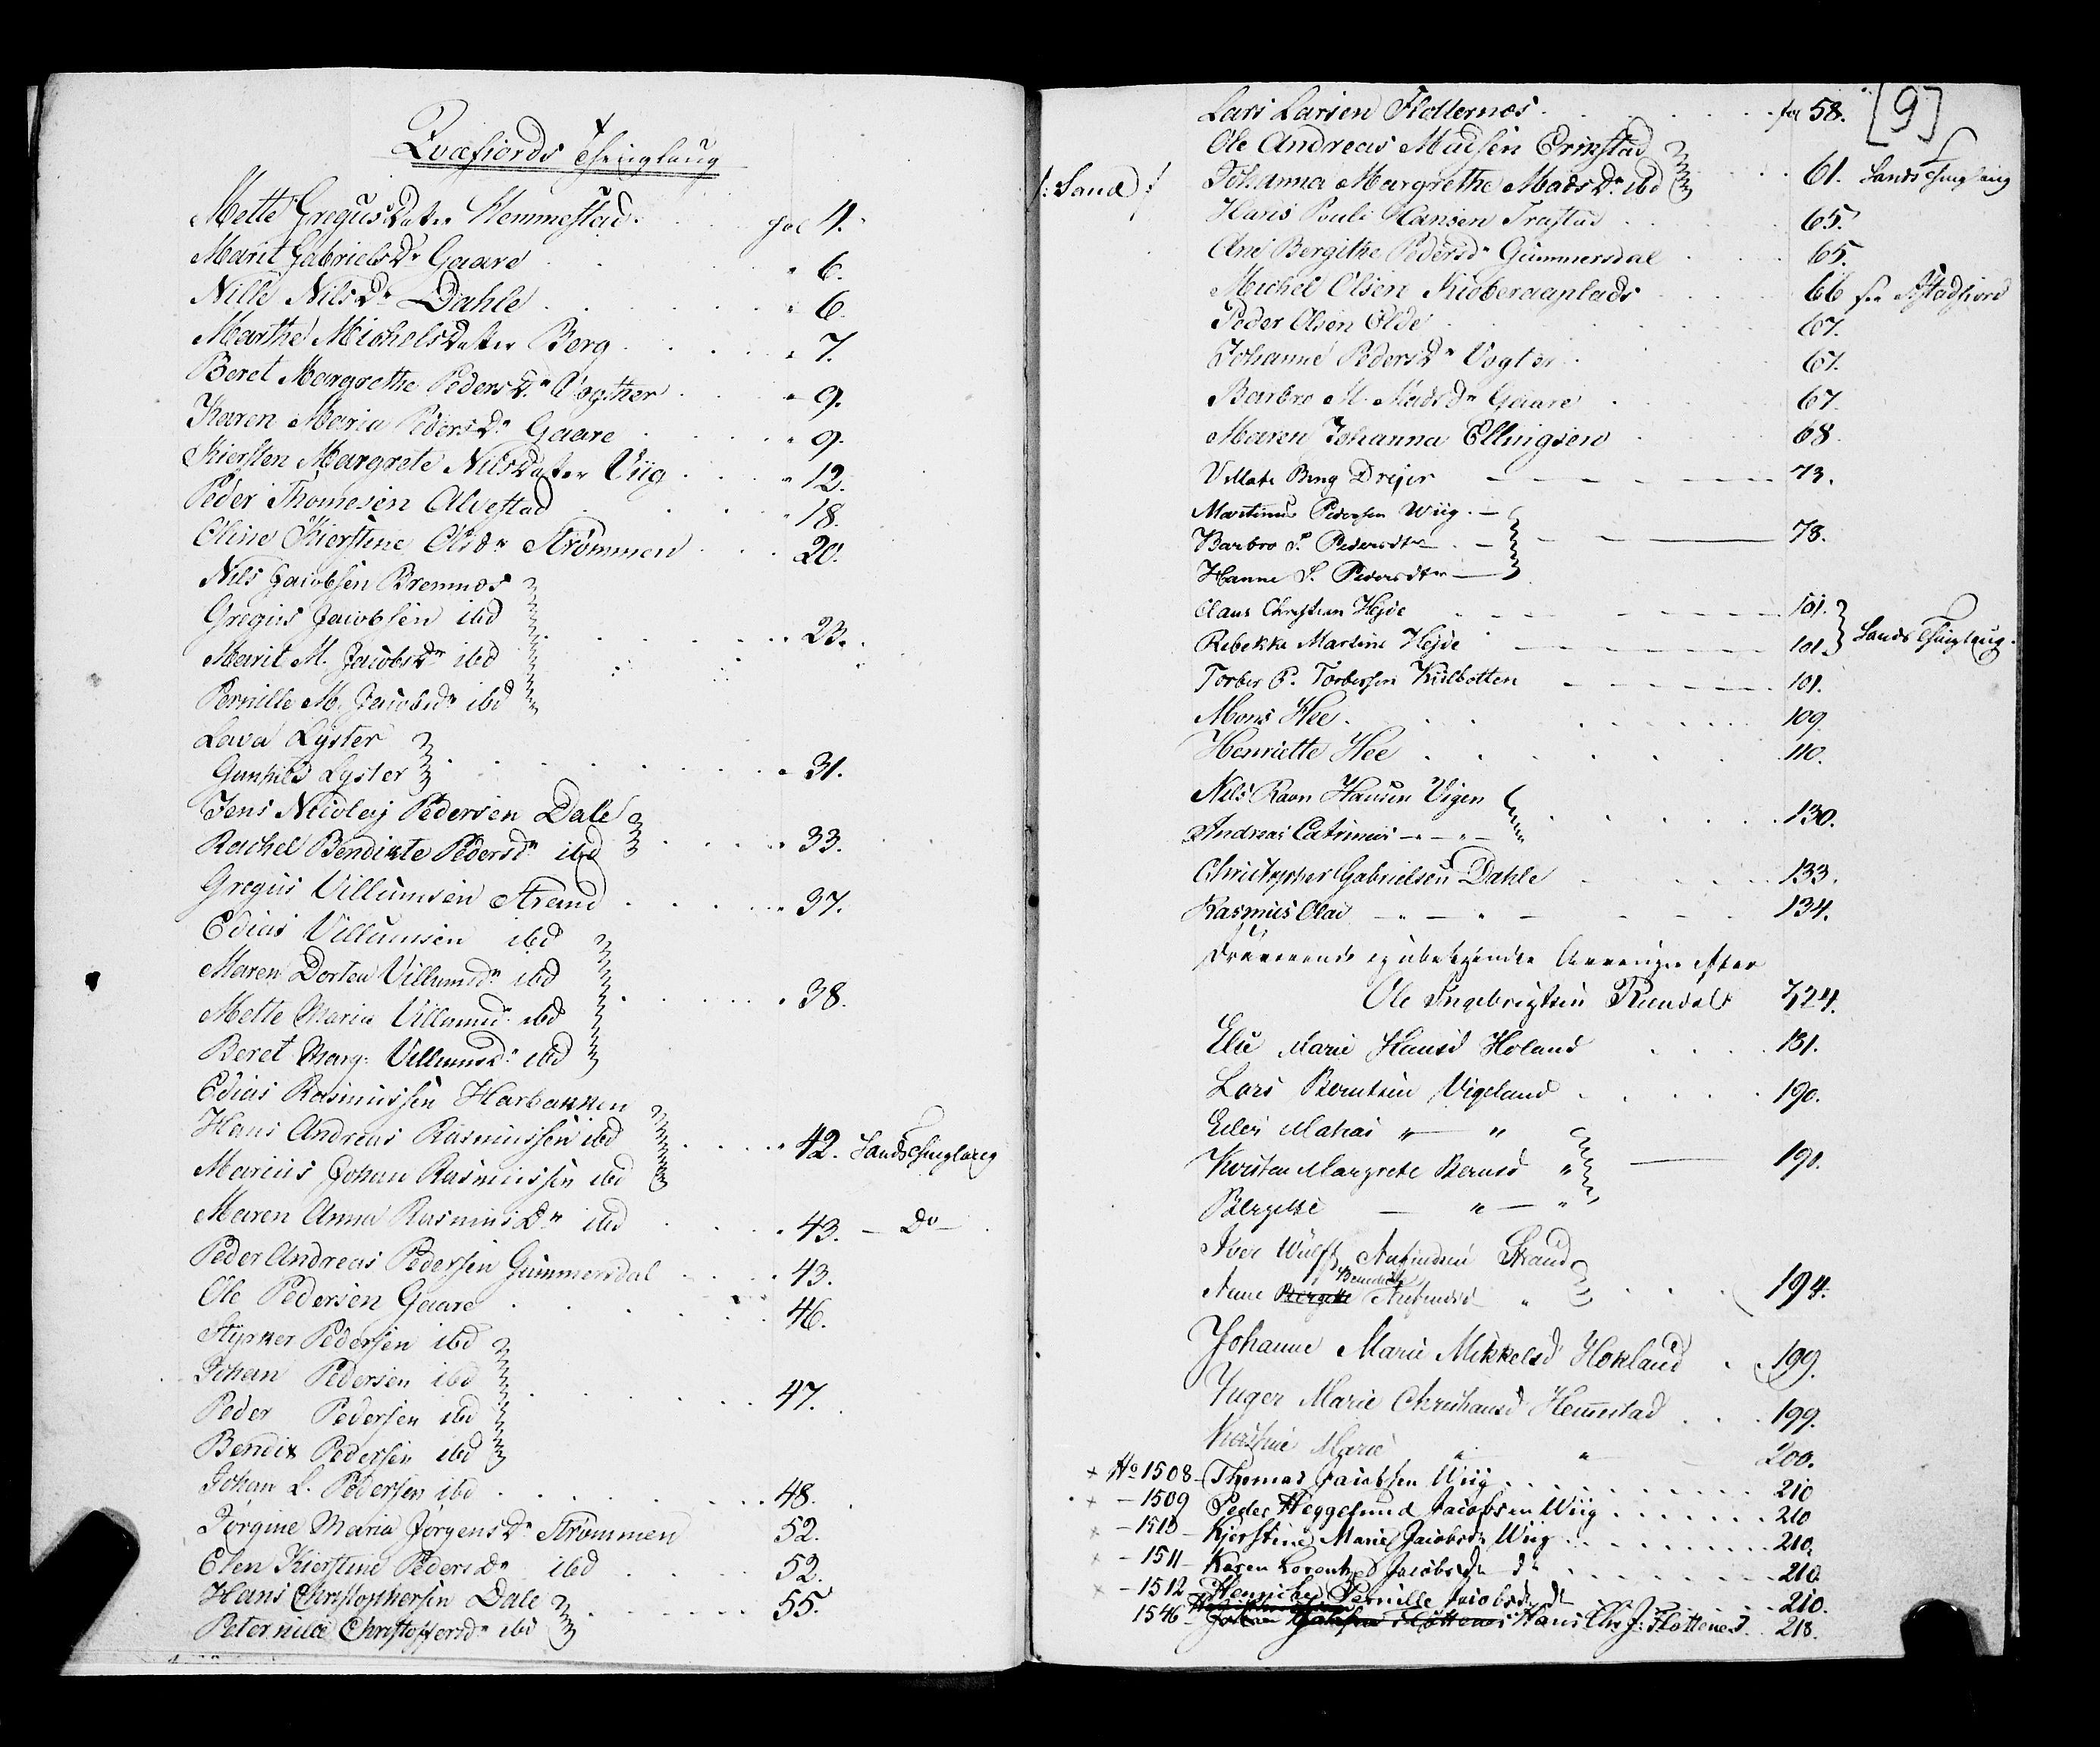 Qvæfjords Thinglaug
Mette GregusDater Hemmestad . . fol 4.
Marit Gabrielsdr Gaare . . . 6.
Nille Nilsdr Dahle . . . 6.
Marthe MichelsDatter Berg . . . 7.
Beret Margrethe Pedersdr Vogther . . . 9.
Karen Maria Pedersdr Gaare . . . 9.
Kiersten Margrete NilsDater Viig . . . 12.
Peder Thomesen Alvestad . . . 18.
Oline Kierstine Olsdr Strømmen . . . 20.
Nils Jacobsen Bremnes
Gregus Jacobsen ibd . . . 23.
Marit M. Jacobsdr ibd
Pernille M. Jacobsdr ibd
Lava Lyster
Gunhild Lyster . . . 31.
Jens Nicolaj Pedersen Dale
Rachel Bendikte Pedersdr ibd . . . 33.
Gregus Villumsen Strand . . . 37.
Edias Villumsen ibd
Maren Dortea Villumsdr ibd . . . 38.
Mette Maria Villumsdr ibd
Beret Marg: Villumsdr ibd
Edias Rasmussen Harbakken
Hans Andreas Rasmussen ibd . . . 42. Sands Thinglaug
Marius Johan Rasmussen ibd
Maren Anna Rasmusdr ibd . . . 43. — Do —
Peder Andreas Pedersen Gummersdal . . . 43.
Ole Pedersen Gaare . . . 46.
Styrker Pedersen ibd
Johan Pedersen ibd . . . 47.
Peder Pedersen ibd
Bendix Pedersen ibd
Johan L. Pedersen ibd . . . 48.
Jørgine Maria Jørgensdr Strømmen 52.
Elen Kierstine Pedersdr ibd . . . 52.
Hans Christophersen Dale . . . 55.
Peternille Christoffersdr ibd
[9]
Lars Larsen Flotternes . . . fol 58.
Ole Andreas Madsen Erikstad
/: Sand :/ Johanna Margrethe Madsdr ibd . . . 61. Sands Thinglaug
Hans Povel Hansen Trastad . . . 65.
Ane Bergithe Pedersdr Gummersdal . . . 65.
Michel Olsen Kioberaaplads . . . 66
Peder Olsen Elde . . . 67.
Johanne Pedersdr Vogter . . . 67.
Barbro M. Madsdr Gaare . . . 67.
Maren Johanna Ellingsen . . . 68.
Villate Berg Drejer — — — 73.
Martinus Pedersen Wiig . —
Barbro S. Pedersdtr . — — 78.
Hanne S. Pedersdtr —
Claus Christian Hejde — — — 101.
Rebekka Martine Hejde — — — 101. Sands Thinglaug.
Torber P. Torbersen Kulbotten — — — 101.
Mons Hee . . . 109
Henriette Hee . . . 110.
Nils Ravn Hansen Vigen . . . 130.
Andreas Catrinus — " —
Christopher Gabrielsen Dahle . . . 133.
Rasmus Olai — " — " — 134.
Ole Ingebrigtsen 724.
Else Marie Hansd Holand . . . 181.
Lars Berntsen Vigeland . . . 190.
Eiler Mahai " — "
Kirsten Margrete Berntsd " — 191.
Bergitte — " — "
Iver Wulff Anfindsen Strand
Anne Bergitte Benedicte Anfindsd " . . . 194.
Johanne Marie Mikkelsd Hokland . 199.
Inger Marie Christiansd Hemmestad . . . 199.
Marie " " 200.
+ No 1508 - Thomas Jacobsen Wiig . . . 210
+ - 1509 Peder Heggelund Jacobsen Wiig . . . 210
+ - 1510 - Kjerstine Marie Jacobsdr Wiig . . . 210.
+ - 1511 - Karen Lorentze Jacobsdr do . . . 210
+ - 1512 - Henrikke Pernille Jacobsdr do . . . 210.
1546 - Hans Chr J: Flottenes . 218.